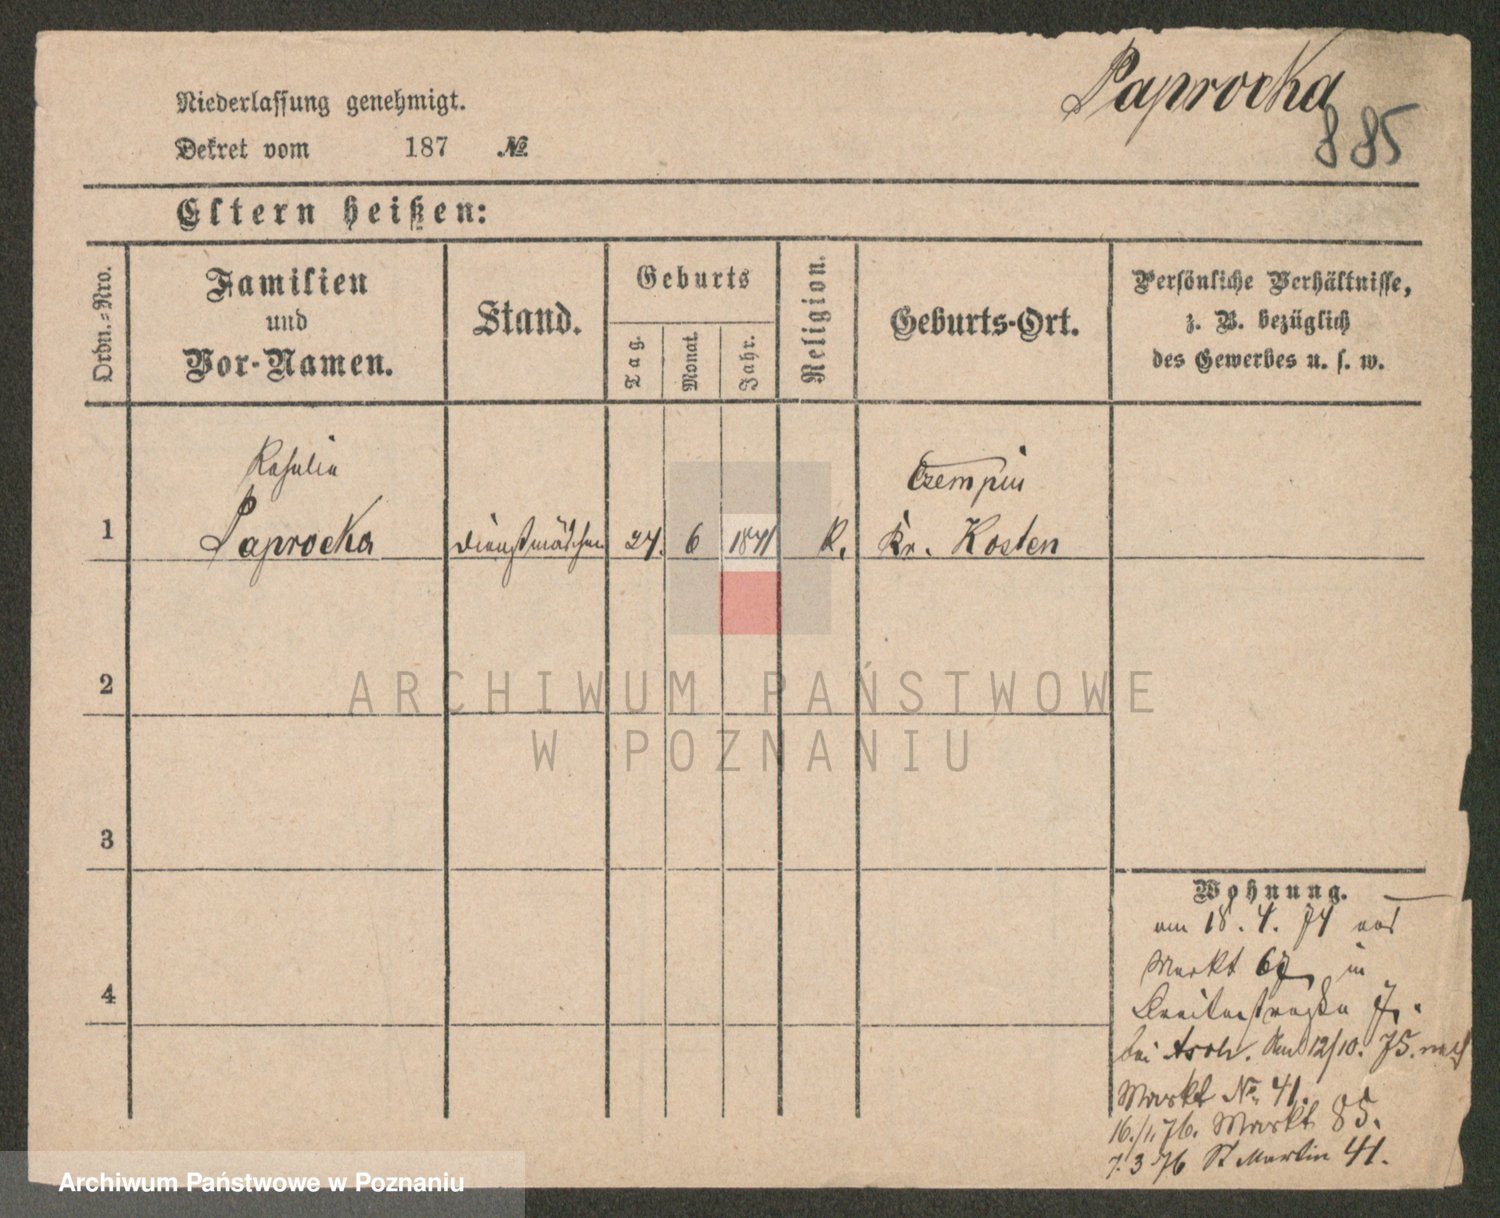 Paprocka
885
Niederlassung genehmigt.
Dekret vom 187 №
Eltern heißen:
Ordn.-Nro.
Familien
und
Vor-Namen.
Stand.
Geburts
Tag.
Monat.
Jahr.
Religion.
Geburts-Ort.
Persönliche Verhältnisse,
z. B. bezüglich
des Gewerbes u. s. w.
Rosalia
Czempin
1 Paprocka Dienstmädchen 6 K. Kr. Kosten
2
3
4
Wohnung.
am 18. 4. 74 aus
Markt 67 in
Breitestraße 7.
bei Asch. Am 12/10. 75. nach
Markt No. 41.
16./1. 76. Markt 85.
7. 3 76 St Martin 41.
ARCHIWUM PAŃSTWOWE
W POZNANIU
Archiwum Państwowe w Poznaniu